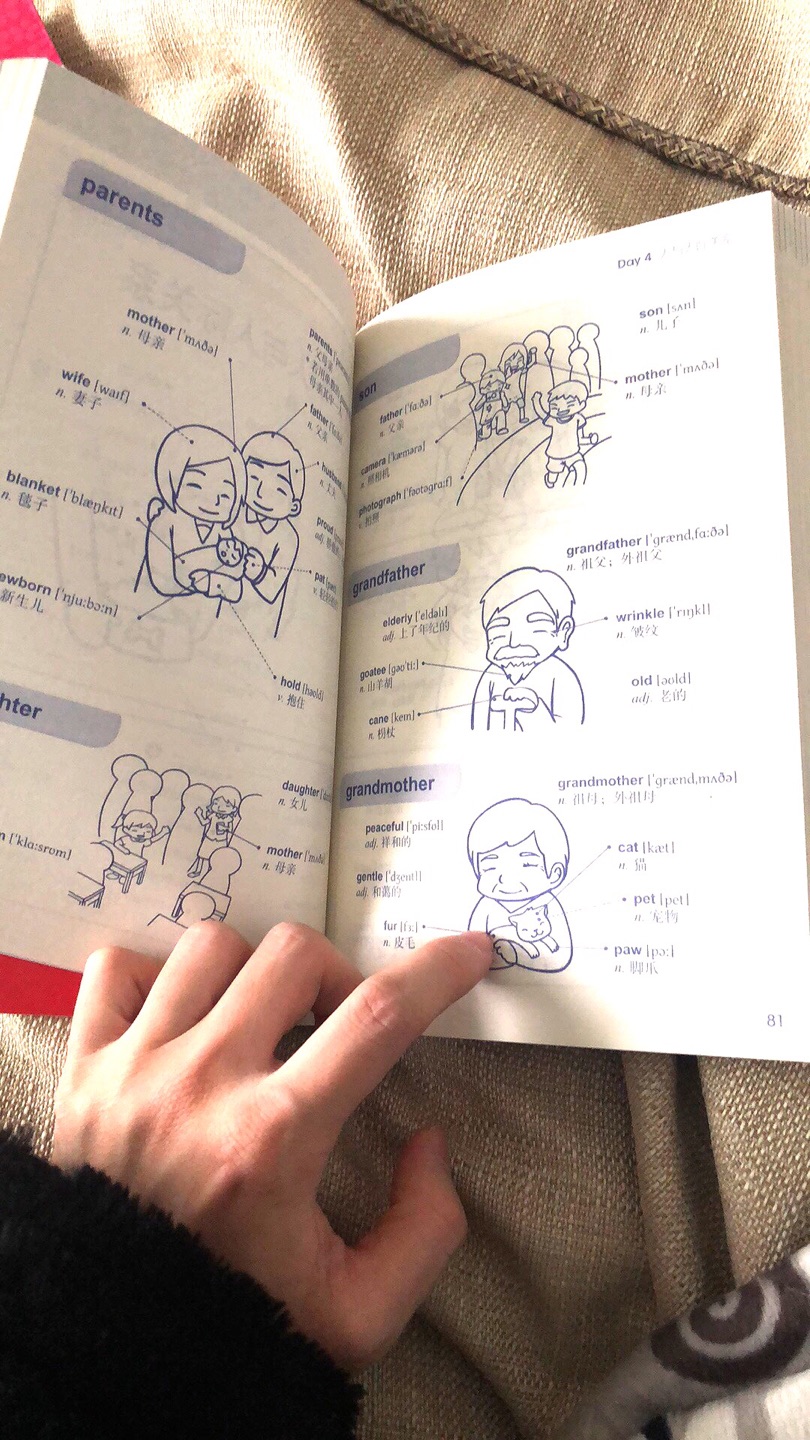 parents
mother ['mʌðə]
n. 母亲
wife [waɪf]
n. 妻子
blanket ['blæŋkɪt]
n. 毯子
ewborn ['nju:bɔ:n]
新生儿
parents
n. 父母亲
father
n. 父亲
n. 丈夫
proud
adj.
pat
hold [həʊld]
v. 抱住
hter
daughter
n. 女儿
['klɑ:srʊm]
mother ['mʌðə]
n. 母亲
Day 4
son
son [sʌn]
n. 儿子
father ['fɑ:ðə]
n. 父亲
mother ['mʌðə]
n. 母亲
camera ['kæmərə]
n. 照相机
photograph ['fəʊtəgrɑ:f]
v. 拍照
grandfather
grandfather ['grænd,fɑ:ðə]
n. 祖父；外祖父
elderly ['eldəlɪ]
adj. 上了年纪的
wrinkle ['rɪŋkl]
n. 皱纹
goatee [gəʊ'ti:]
n. 山羊胡
old [əʊld]
adj. 老的
cane [keɪn]
n. 拐杖
grandmother
grandmother ['grænd,mʌðə]
n. 祖母；外祖母
peaceful ['pi:sfʊl]
adj. 祥和的
cat [kæt]
n. 猫
gentle ['dʒentl]
adj. 和蔼的
pet [pet]
n. 宠物
fur [fɜ:]
n. 皮毛
paw [pɔ:]
n. 脚爪
81